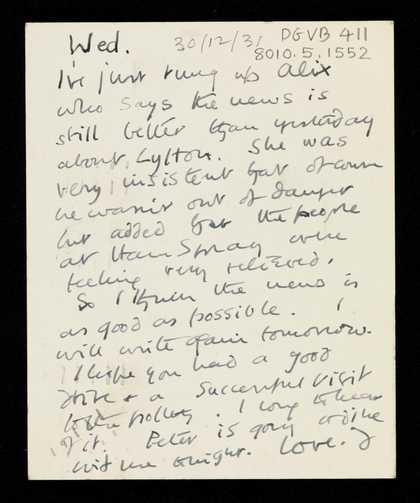 Wed. 30/12/31 DGVB 411
8010.5.1552
I've just rung up Alix
who says the news is
still better than yesterday
about Lytton. She was
very insistent that of course
he wasn't out of danger
but added that the people
at Ham Spray were
feeling very relieved.
So I think the news is
as good as possible. I
will write again tomorrow.
I hope you had a good
drive & a successful visit
to the pottery. I long to hear
of it. Peter is going to dine
with me tonight. Love.